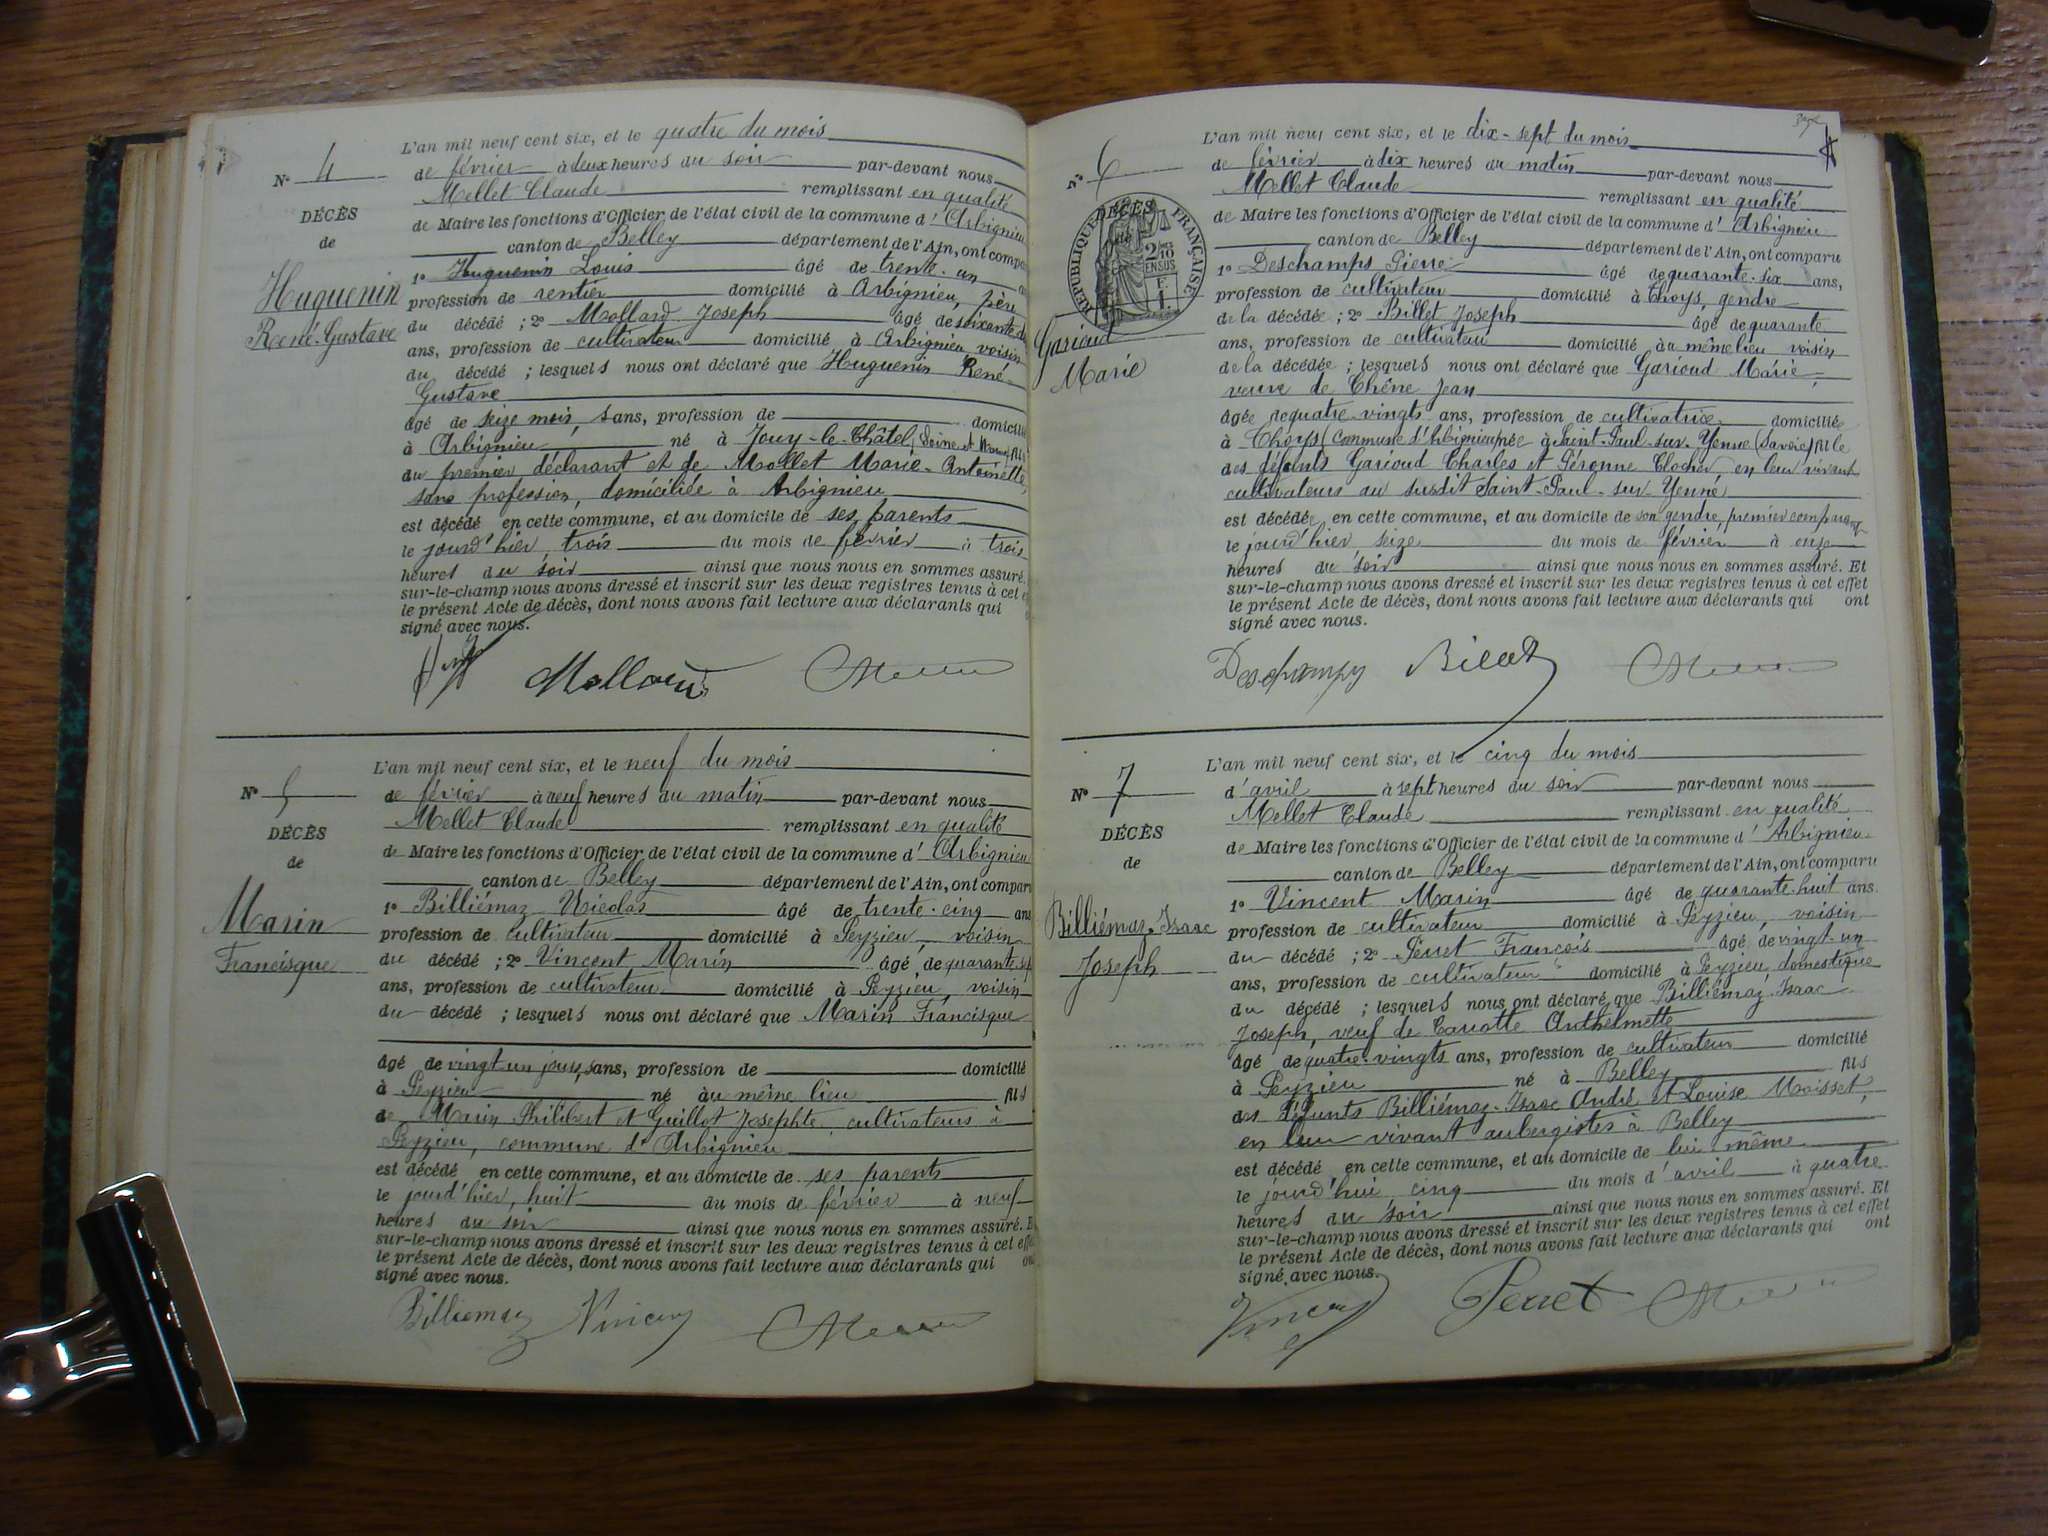 L'an mil neuf cent six, et le quatre du mois
N° 4
de février à deux heures du soir par-devant nous
Mellet Claude remplissant en qualité
DÉCÈS
de Maire les fonctions d'Officier de l'état civil de la commune d'Arbignieu
de
canton de Belley département de l'Ain, ont compa
1° Huguenin Louis âgé de trente-un
Huguenin
profession de rentier domicilié à Arbignieu, père
René-Gustave
du décédé ; 2° Mollard Joseph âgé de soixante
ans, profession de cultivateur domicilié à Arbignieu, voisin
du décédé ; lesquels nous ont déclaré que Huguenin René-
Gustave
âgé de seize mois, sans, profession de domicilié
à Arbignieu né à Jouy-le-Châtel, (Seine et Marne) fils
du premier déclarant et de Mollet Marie-Antoinette,
sans profession, domiciliée à Arbignieu
est décédé en cette commune, et au domicile de ses parents
le jourd'hier, trois du mois de février à trois
heures du soir ainsi que nous nous en sommes assuré.
sur-le-champ nous avons dressé et inscrit sur les deux registres tenus à cet e
le présent Acte de décès, dont nous avons fait lecture aux déclarants qui
signé avec nous.
Mollard
L'an mil neuf cent six, et le neuf du mois
N° 5
de février à neuf heures du matin par-devant nous
Mellet Claude remplissant en qualité
DÉCÈS
de Maire les fonctions d'Officier de l'état civil de la commune d'Arbignieu
de
canton de Belley département de l'Ain, ont comparu
1° Billiémaz Nicolas âgé de trente-cinq ans
Marin
profession de cultivateur domicilié à Peyzieu, voisin
Francisque
du décédé ; 2° Vincent Marin âgé de quarante-sept
ans, profession de cultivateur domicilié à Peyzieu, voisin
du décédé ; lesquels nous ont déclaré que Marin Francisque
âgé de vingt un jours, sans, profession de domicilié
à Peyzieu né au même lieu fils
de Marin Philibert et Guillot Josephte, cultivateurs à
Peyzieu, commune d'Arbignieu
est décédé en cette commune, et au domicile de ses parents
le jourd'hier, huit du mois de février à neuf
heures du soir ainsi que nous nous en sommes assuré. E
sur-le-champ nous avons dressé et inscrit sur les deux registres tenus à cet effe
le présent Acte de décès, dont nous avons fait lecture aux déclarants qui on
signé avec nous.
Billiemaz Vincent
L'an mil neuf cent six, et le dix-sept du mois
N° 6
de février à dix heures du matin par-devant nous
Mellet Claude remplissant en qualité
DÉCÈS
de Maire les fonctions d'Officier de l'état civil de la commune d'Arbignieu
de
RÉPUBLIQUE FRANÇAISE
2/10 EN SUS
canton de Belley département de l'Ain, ont comparu
1° Deschamps Pierre âgé de quarante-six ans,
profession de cultivateur domicilié à Thoys, gendre
de la décédée ; 2° Billet Joseph âgé de quarante
Garioud
ans, profession de cultivateur domicilié au même lieu, voisin
Marie
de la décédée ; lesquels nous ont déclaré que Garioud Marie,
veuve de Chêne Jean
âgée de quatre-vingts ans, profession de cultivatrice domiciliée
à Thoys (commune d'Arbignieu) née à Saint-Paul-sur-Yenne (Savoie) fille
des défunts Garioud Charles et Péronne Clocher, en leur vivant
cultivateurs au susdit Saint-Paul-sur-Yenne
est décédée en cette commune, et au domicile de son gendre, premier comparant
le jourd'hier, seize du mois de février à onze
heures du soir ainsi que nous nous en sommes assuré. Et
sur-le-champ nous avons dressé et inscrit sur les deux registres tenus à cet effet
le présent Acte de décès, dont nous avons fait lecture aux déclarants qui ont
signé avec nous.
Deschamps Billet
L'an mil neuf cent six, et le cinq du mois
N° 7
d'avril à sept heures du soir par-devant nous
Mellet Claude remplissant en qualité
DÉCÈS
de Maire les fonctions d'Officier de l'état civil de la commune d'Arbignieu
de
canton de Belley département de l'Ain, ont comparu
1° Vincent Marin âgé de quarante-huit ans.
Billiémaz-Isaac
profession de cultivateur domicilié à Peyzieu, voisin
Joseph
du décédé ; 2° Perret François âgé de vingt-un
ans, profession de cultivateur domicilié à Peyzieu, domestique
du décédé ; lesquels nous ont déclaré que Billiémaz-Isaac
Joseph, veuf de Cariotte Anthelmette
âgé de quatre-vingts ans, profession de cultivateur domicilié
à Peyzieu né à Belley fils
des défunts Billiémaz-Isaac André et Louise Moisset,
en leur vivant aubergistes à Belley
est décédé en cette commune, et au domicile de lui même
le jourd'hui cinq du mois d'avril à quatre
heures du soir ainsi que nous nous en sommes assuré. Et
sur-le-champ nous avons dressé et inscrit sur les deux registres tenus à cet effet
le présent Acte de décès, dont nous avons fait lecture aux déclarants qui ont
signé avec nous.
Vincent Perret